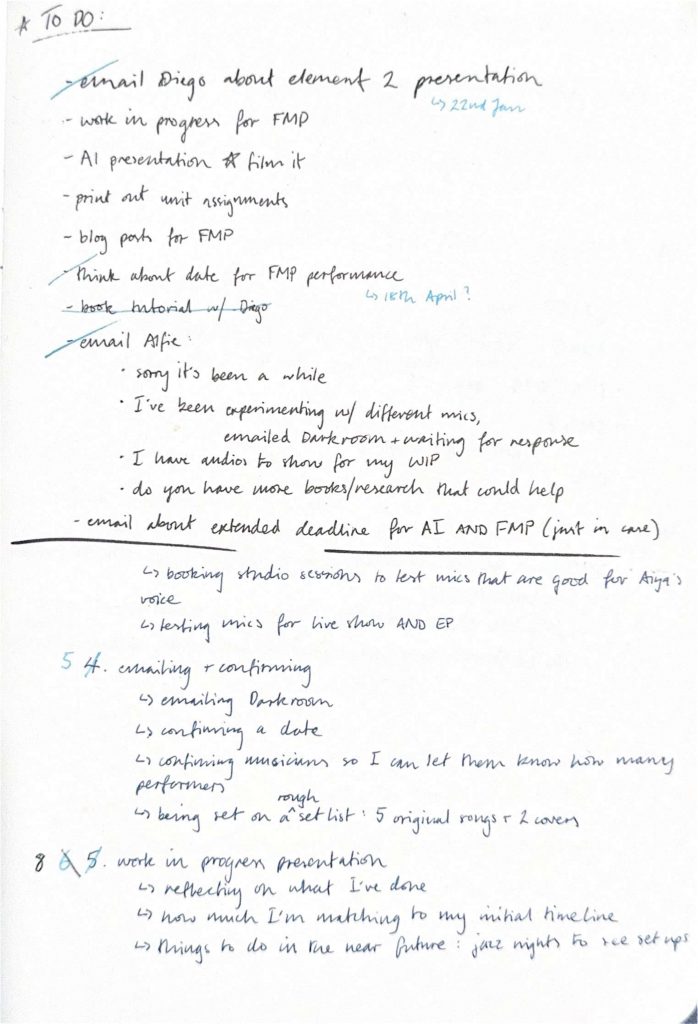 * TO DO:
- email Diego about element 2 presentation
↳ 22nd Jan
- work in progress for FMP
- AI presentation * film it
- print out unit assignments
- blog posts for FMP
- think about date for FMP performance
↳ 18th April?
- book tutorial w/ Diego
- email Alfie:
• sorry it's been a while
• I've been experimenting w/ different mics,
emailed Darkroom + waiting for response
• I have audios to show for my WIP
• do you have more books/research that could help
- email about extended deadline for AI AND FMP (just in case)
↳ booking studio sessions to test mics that are good for Aiya's
voice
↳ testing mics for live show AND EP
5 4. emailing + confirming
↳ emailing Darkroom
↳ confirming a date
↳ confirming musicians so I can let them know how many
performers
rough
↳ being set on a ^ set list: 5 original songs + 2 covers
8 6 5. work in progress presentation
↳ reflecting on what I've done
↳ how much I'm matching to my initial timeline
↳ things to do in the near future: jazz nights to see set ups